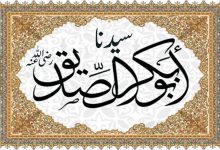 سيدنا
أبو بكر الصّديق
رضي الله عنه